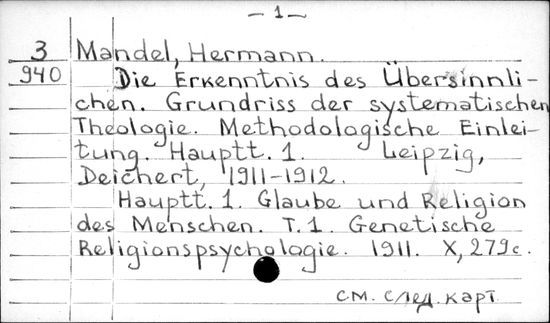 — 1 —
3 Mandel, Hermann.
940 Die Erkenntnis des Übersinnli-
chen. Grundriss der systematischen
Theologie. Methodologische Einlei-
tung. Hauptt. 1. Leipzig,
Deichert, 1911-1912.
Hauptt. 1. Glaube und Religion
des Menschen. T. 1. Genetische
Religionspsychologie. 1911. X, 279 с.
см. след. карт